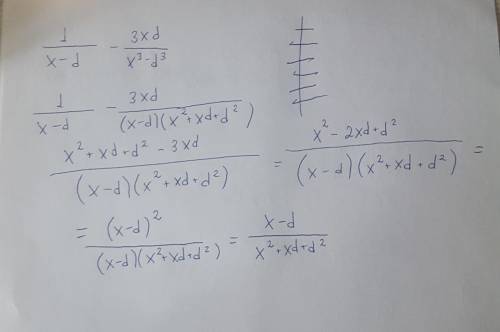 1/(x-d) - 3xd/(x³-d³)
1/(x-d) - 3xd/((x-d)(x²+xd+d²))
(x²+xd+d²-3xd)/((x-d)(x²+xd+d²)) = (x²-2xd+d²)/((x-d)(x²+xd+d²)) =
= (x-d)²/((x-d)(x²+xd+d²)) = (x-d)/(x²+xd+d²)